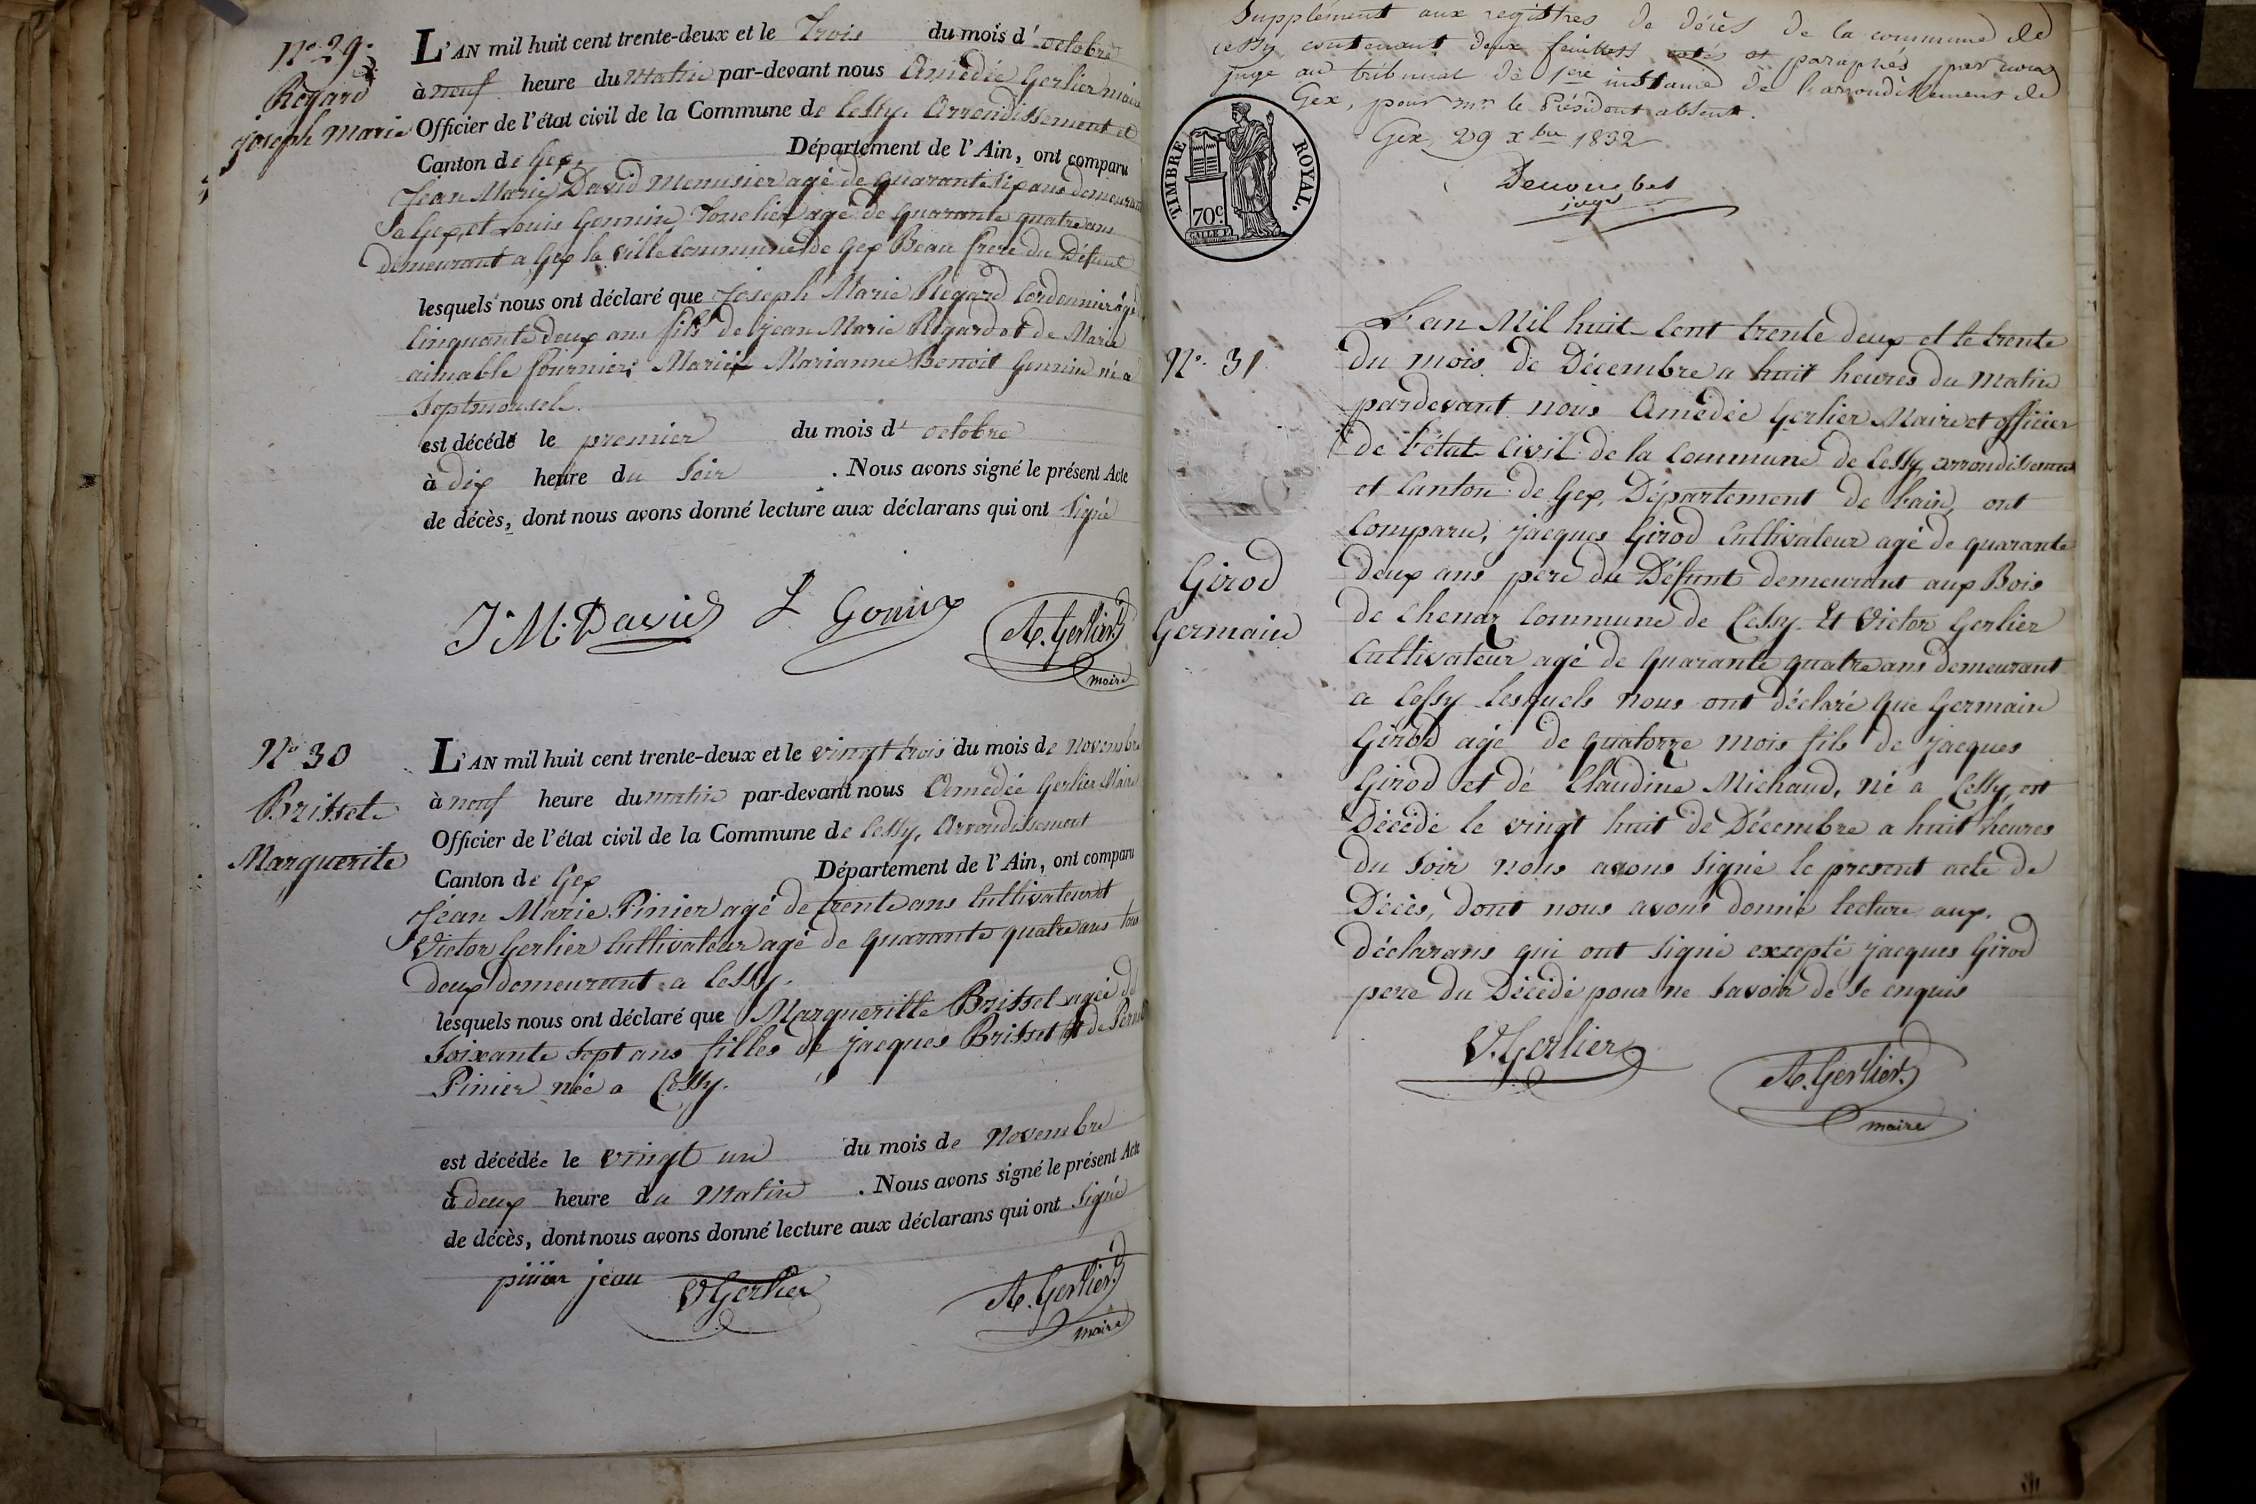 N.º 29.
Regard
joseph Marie
L'AN mil huit cent trente-deux et le Trois du mois d'octobre
à neuf heure du Matin par-devant nous Amédée Gerlier maire
Officier de l'état civil de la Commune de Cessy, Arrondissement et
Canton de Gex, Département de l'Ain, ont comparu
Jean Marie David Menuisier agé de quarante six ans demeurant
a Gex, et Louis Gonnin, Tonelier agé de quarante quatre ans
demeurant a Gex la ville Commune de Gex Beau frere du Défunt
lesquels nous ont déclaré que Joseph Marie Regard Cordonnier âgé
Cinquante deux ans fils de jean Marie Regard et de Marie
aimable fournier; Mariée Marianne Benoit Gonnin né a
Septmoncel.
est décédé le premier du mois d' octobre
à dix heure du Soir . Nous avons signé le présent Acte
de décès, dont nous avons donné lecture aux déclarans qui ont Signé
J M. David L Gonin A. Gerlier
maire
N.º 30
Brisset
Marguerite
L'AN mil huit cent trente-deux et le vingt trois du mois de Novembre
à neuf heure du matin par-devant nous Amédée Gerlier Maire
Officier de l'état civil de la Commune de Cessy, Arrondissement
Canton de Gex Département de l'Ain, ont comparu
Jean Marie Pinier agé de trente ans Cultivateur et
Victor Gerlier Cultivateur agé de quarante quatre ans tous
deux demeurant a Cessy.
lesquels nous ont déclaré que Margueritte Brisset agée de
Soixante Sept ans filles de jacques Brisset et de
Pinier née a Cessy.
est décédée le vingt un du mois de Novembre
à deux heure du Matin . Nous avons signé le présent Acte
de décès, dont nous avons donné lecture aux déclarans qui ont Signé
pinier jean V Gerlier A. Gerlier
maire
Supplément aux registres de décès de la commune de
Cessy contenant deux feuillets cotés et paraphés par nous
juge au tribunal de 1ere instance de l'arrondissement de
Gex, pour mr le Président absent.
Gex, 29 xbre 1832
juge
TIMBRE ROYAL.
70 c.
N.º 31
Girod
Germain
L'an Mil huit Cent trente deux et le trente
du mois de Décembre a huit heures du Matin
pardevant nous Amédée Gerlier Maire et officier
de l'état Civil de la Commune de Cessy, arrondissement
et Canton de Gex, Département de l'ain, ont
Comparu, jacques Girod Cultivateur agé de quarante
deux ans pere du Défunt demeurant aux Bois
de Chenaz Commune de Cessy. Et Victor Gerlier
Cultivateur agé de quarante quatre ans demeurant
a Cessy lesquels nous ont déclaré que Germain
Girod agé de quatorze mois fils de jacques
Girod et de Claudine Michaud, né a Cessy, est
Décédé le vingt huit de Décembre a huit heures
du Soir nous avons Signé le present acte de
Décès, dont nous avons donné lecture aux
déclarans qui ont Signé excepté jacques Girod
pere du Décédé pour ne Savoir de Se enquis
V. Gerlier
A. Gerlier
maire